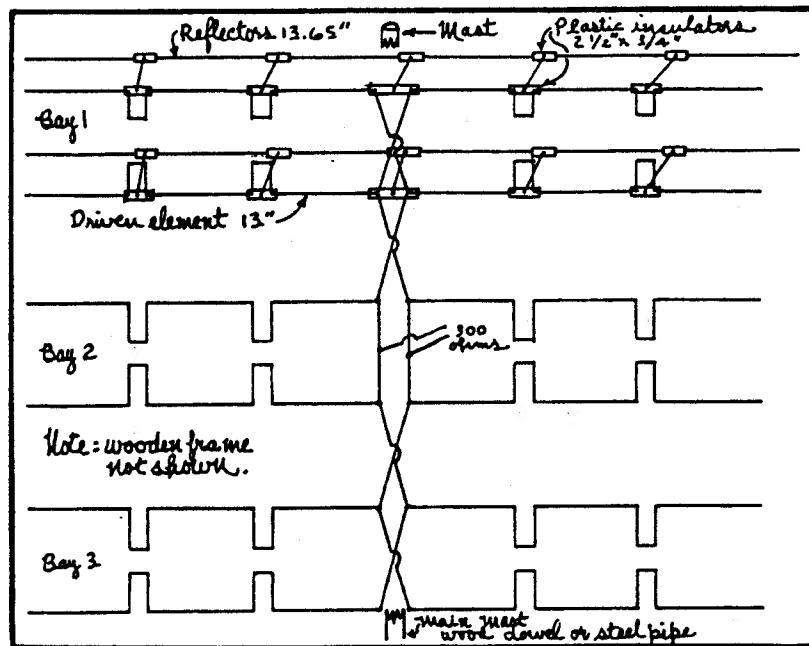 Reflectors 13.65"
Mast
Plastic insulators
2 1/2" x 3/4"
Bay 1
Driven element 13"
Bay 2
300
ohms
Note = wooden frame
not shown.
Bay 3
Main Mast
wood dowel or steel pipe